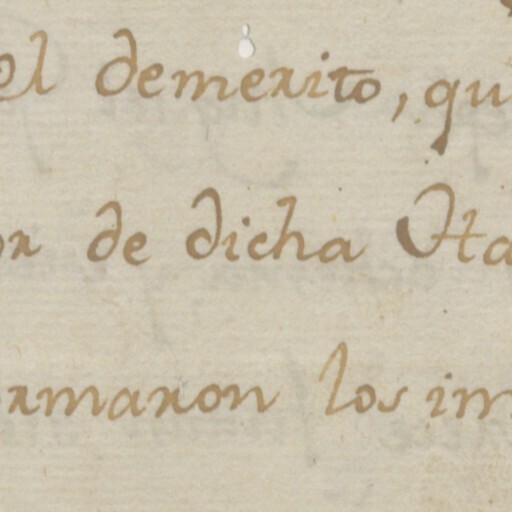 el demerito, qu
or de dicha Ha
ormaron los im